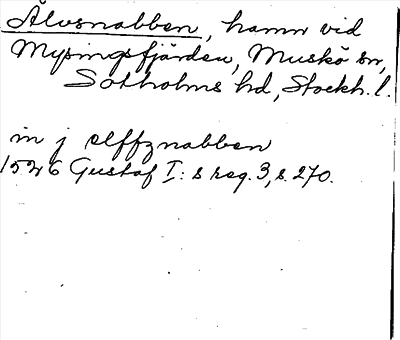 Älvsnabben, hamn vid
Mysingsfjärden, Muskö sn,
Sotholms hd, Stockh. l.
in j elffznabben
1526 Gustaf I:s reg. 3, s. 270.